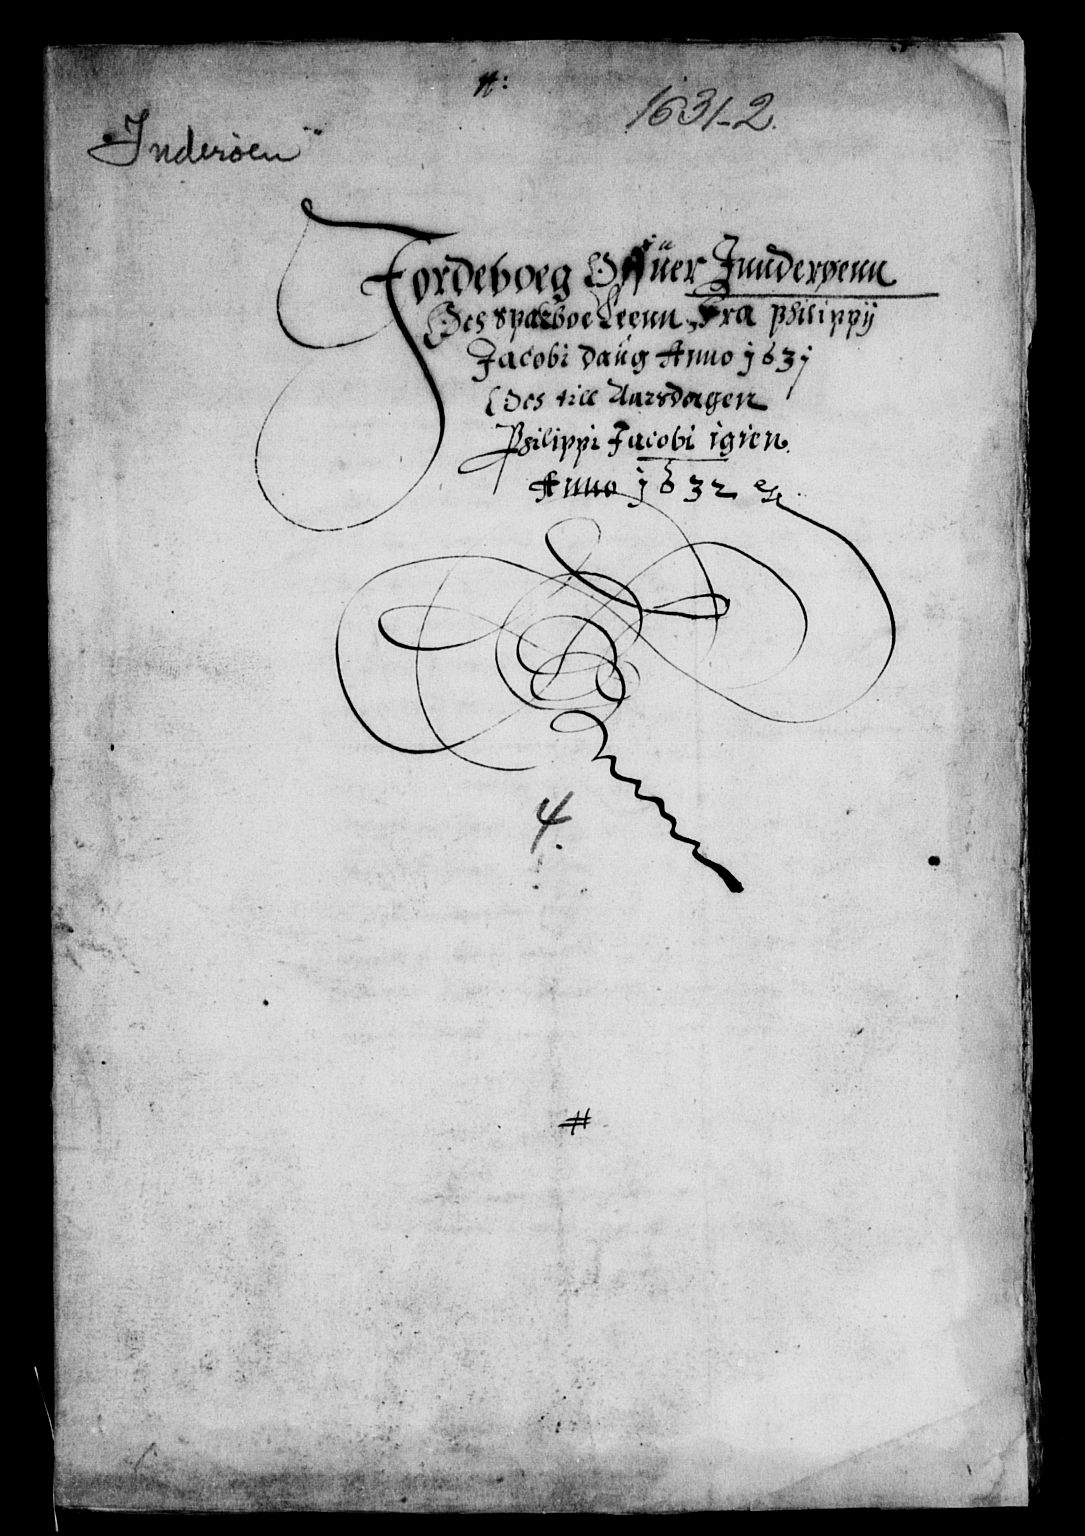 #:
1631-2.
Inderøen
Jordeboeg Offuer Jnnderøenn
Och sparboe Leenn, Fra Philippij
Jacobi daug Anno 1631
Och till Aarsdagen
Philippi Jacobi igien.
Anno 1632
4.
#